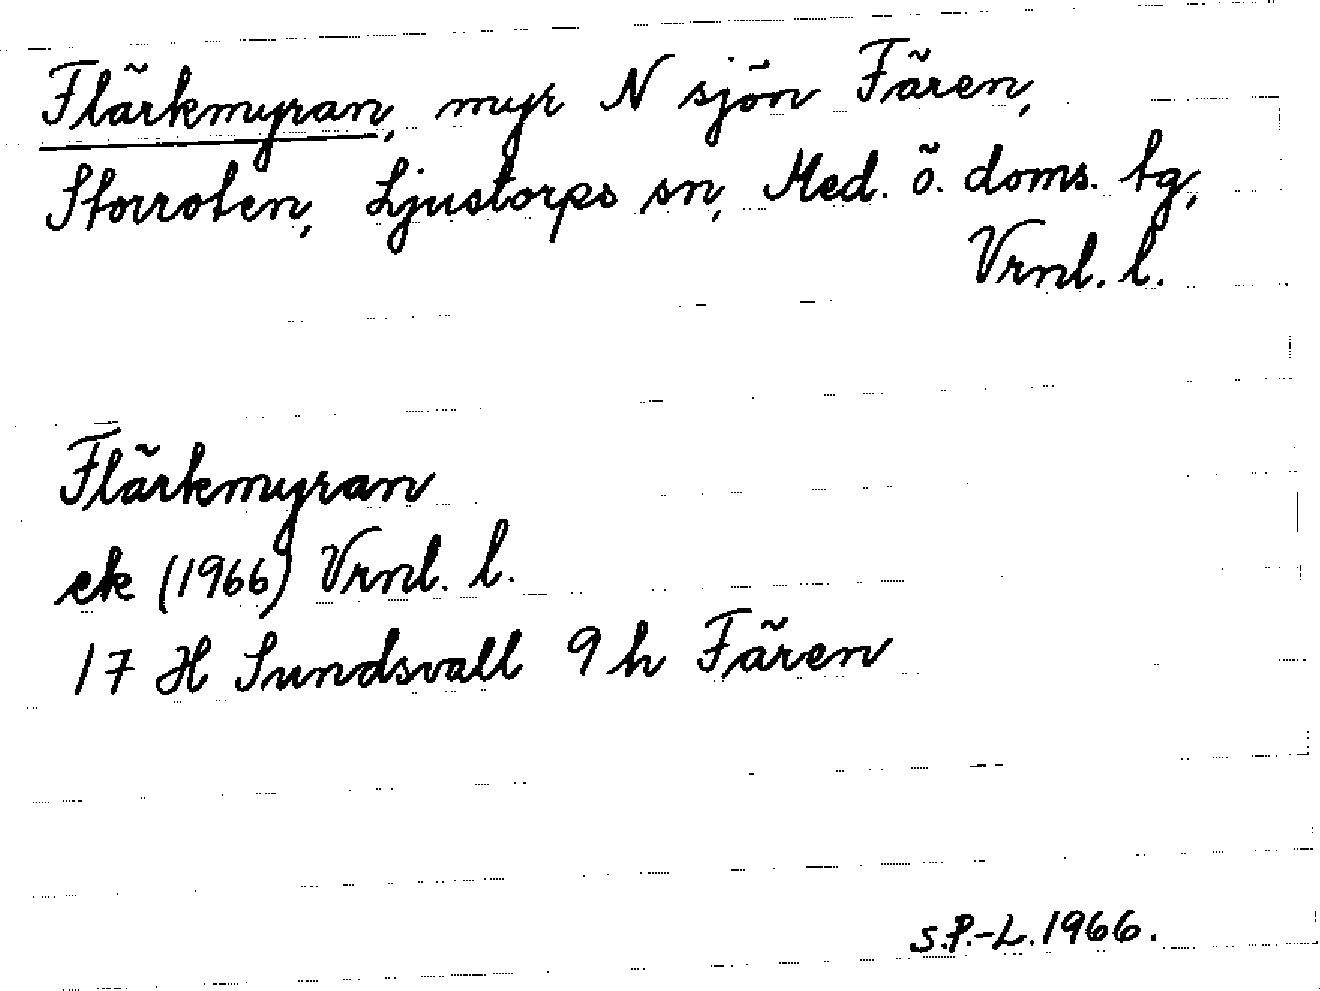 Flärkmyran, myr N sjön Fären,
Storroten, Ljustorps sn, Med. ö. doms. tg,
Vrnl. l.
Flärkmyran
ek (1966) Vrnl. l.
17 H Sundsvall 9 h Fären
S.P.-L. 1966.